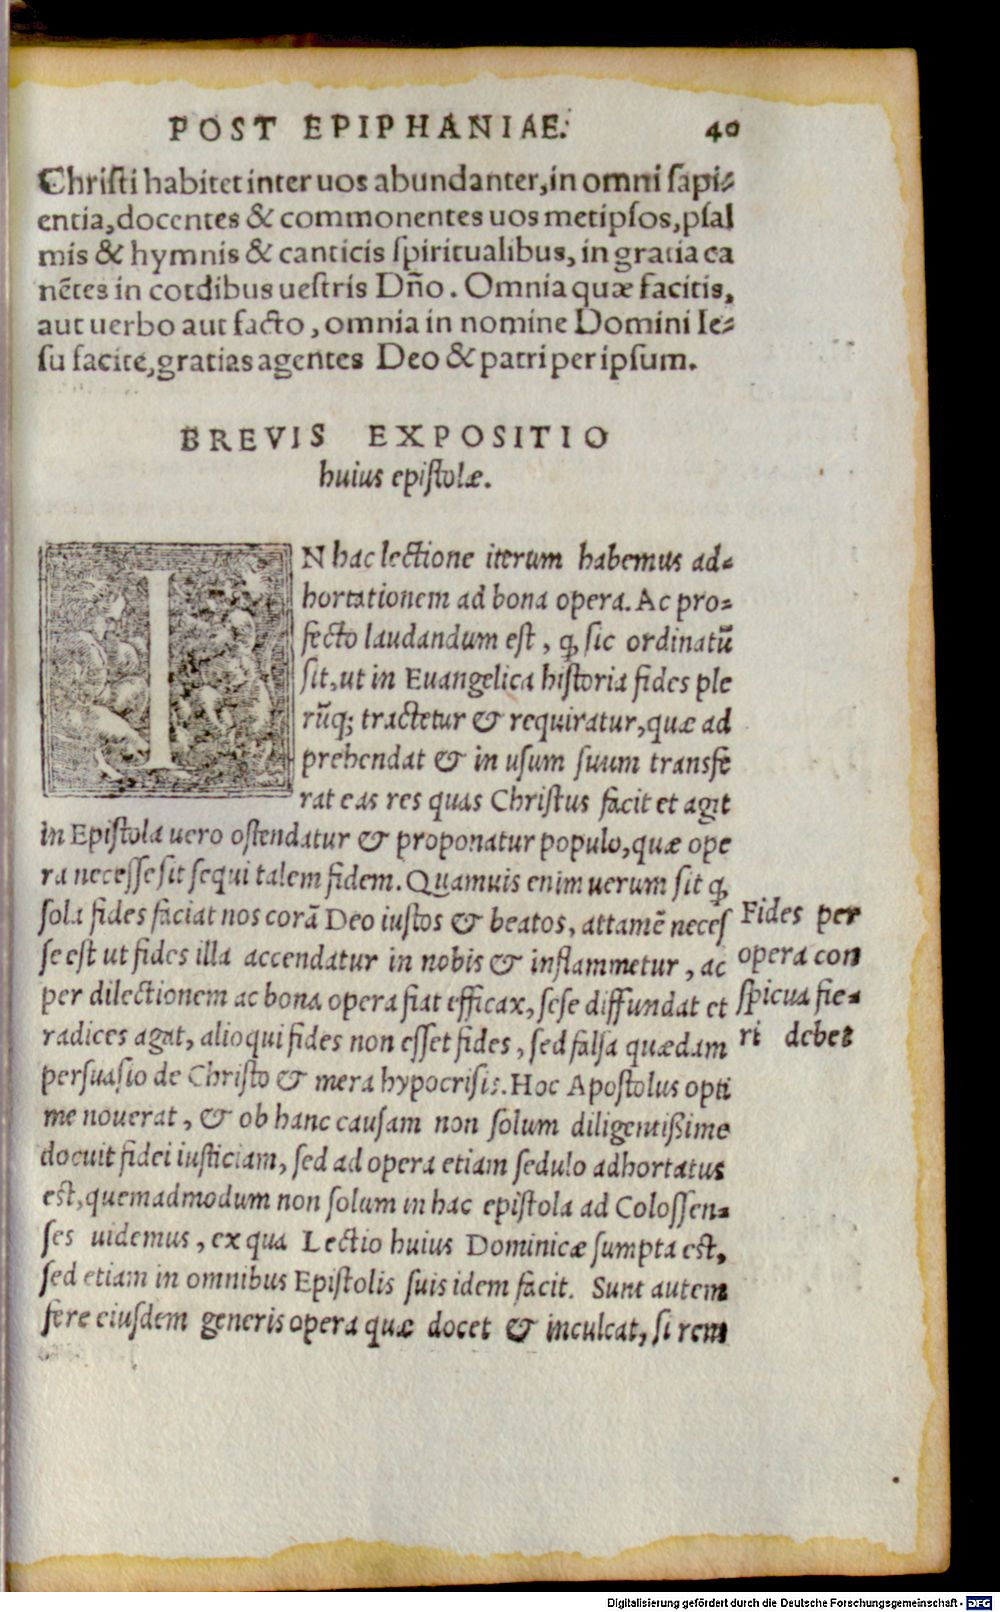 POST EPIPHANIAE. 40
Chriſti habitet inter uos abundanter, in omni ſapi-
entia, docentes & commonentes uos metipſos, pſal
mis & hymnis & canticis ſpiritualibus, in gratia ca
nẽtes in cordibus ueſtris Dño. Omnia quæ facitis,
aut uerbo aut facto, omnia in nomine Domini Ie-
ſu facite, gratias agentes Deo & patri per ipſum.
BREVIS EXPOSITIO
huius epiſtolæ.
IN hac lectione iterum habemus ad-
hortationem ad bona opera. Ac pro-
fecto laudandum eſt, ꝙ ſic ordinatũ
ſit, ut in Euangelica hiſtoria fides ple
rũq; tractetur & requiratur, quæ ad
prehendat & in uſum ſuum transfe
rat eas res quas Chriſtus facit et agit
in Epiſtola uero oſtendatur & proponatur populo, quæ ope
ra neceſſe ſit ſequi talem fidem. Quamuis enim uerum ſit ꝙ
ſola fides faciat nos corã Deo iuſtos & beatos, attamẽ neceſ
ſe eſt ut fides illa accendatur in nobis & inflammetur, ac
per dilectionem ac bona opera fiat efficax, ſeſe diffundat et
radices agat, alioqui fides non eſſet fides, ſed falſa quædam
perſuaſio de Chriſto & mera hypocriſis. Hoc Apoſtolus opti
me nouerat, & ob hanc cauſam non ſolum diligentißime
docuit fidei iuſticiam, ſed ad opera etiam ſedulo adhortatus
eſt, quemadmodum non ſolum in hac epiſtola ad Coloſſen-
ſes uidemus, ex qua Lectio huius Dominicæ ſumpta eſt,
ſed etiam in omnibus Epiſtolis ſuis idem facit. Sunt autem
fere eiuſdem generis opera quæ docet & inculcat, ſi rem
Fides per
opera con
ſpicua fie-
ri debet
Digitalisierung gefördert durch die Deutsche Forschungsgemeinschaft - DFG